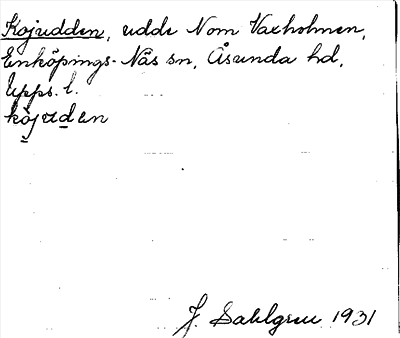 Kojudden, udde Nom Vaxholmen,
Enköpings-Näs sn, Åsunda hd,
Upps. l.
kòjuden
J. Sahlgren 1931